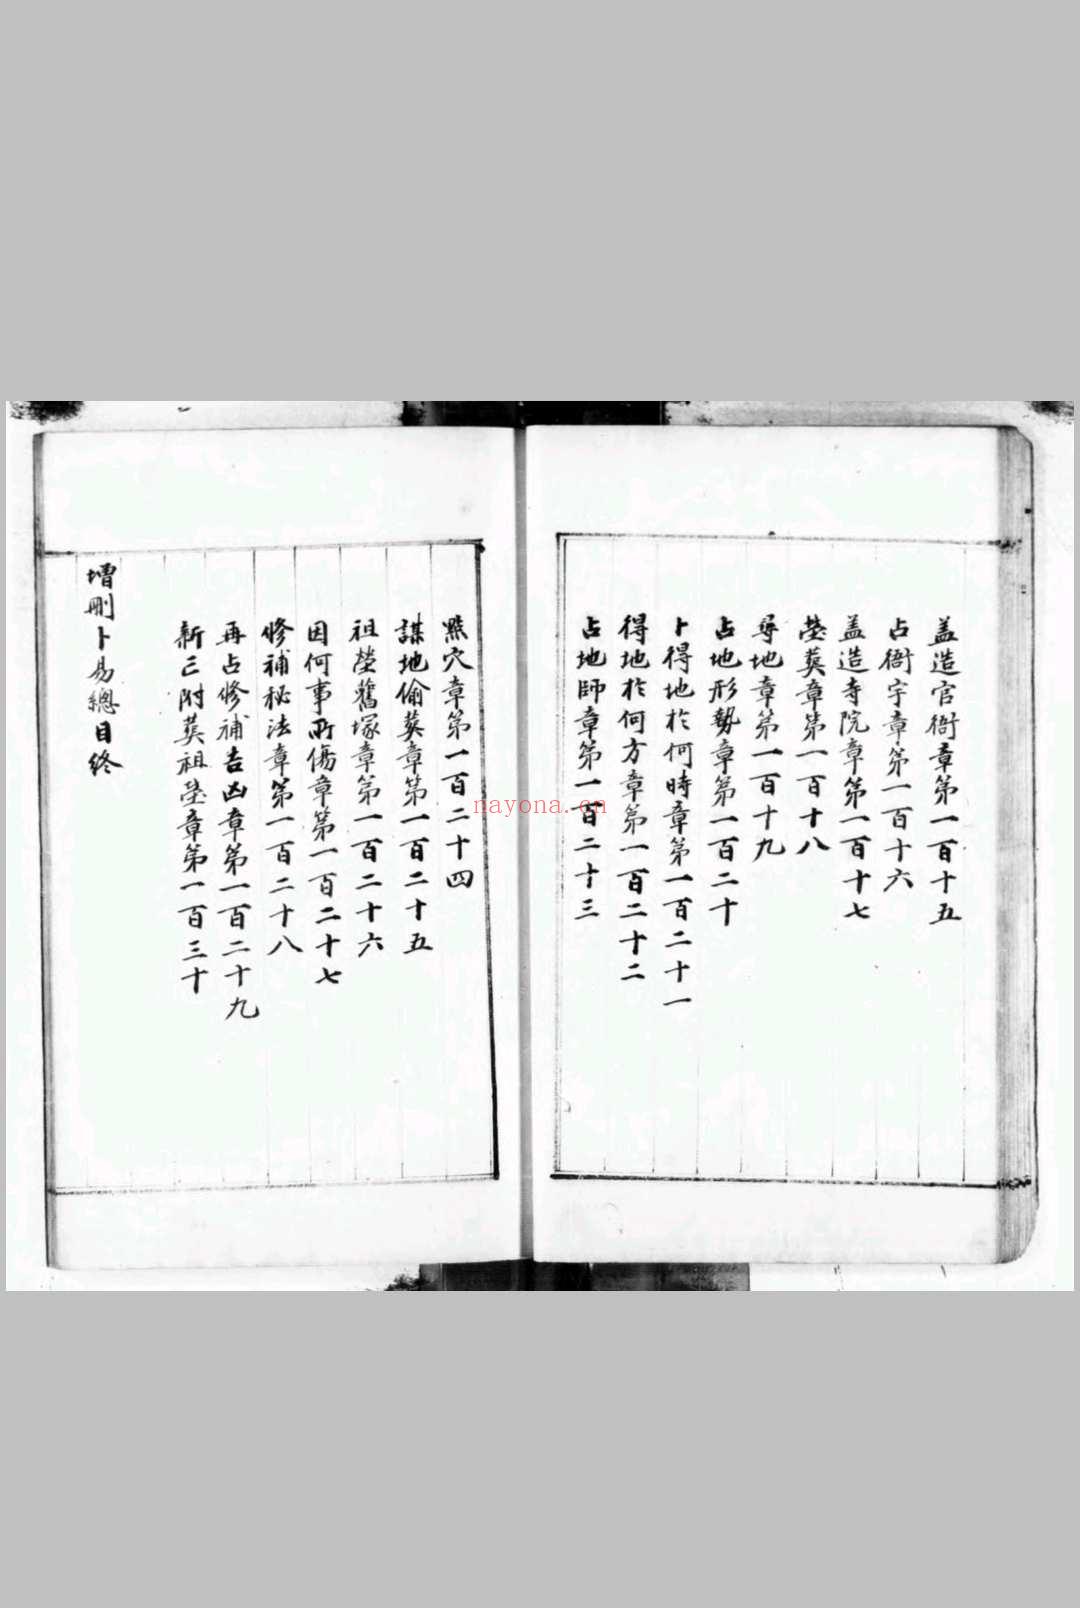 盖造官衙章第一百十五
占衙宇章第一百十六
盖造寺院章第一百十七
塋葬章第一百十八
尋地章第一百十九
占地形勢章第一百二十
卜得地於何時章第一百二十一
得地於何方章第一百二十二
占地師章第一百二十三
點穴章第一百二十四
謀地偷葬章第一百二十五
祖塋舊塚章第一百二十六
因何事所傷章第一百二十七
修補秘法章第一百二十八
再占修補吉凶章第一百二十九
新亡附葬祖塋章第一百三十
增刪卜易總目終
nayona.cn